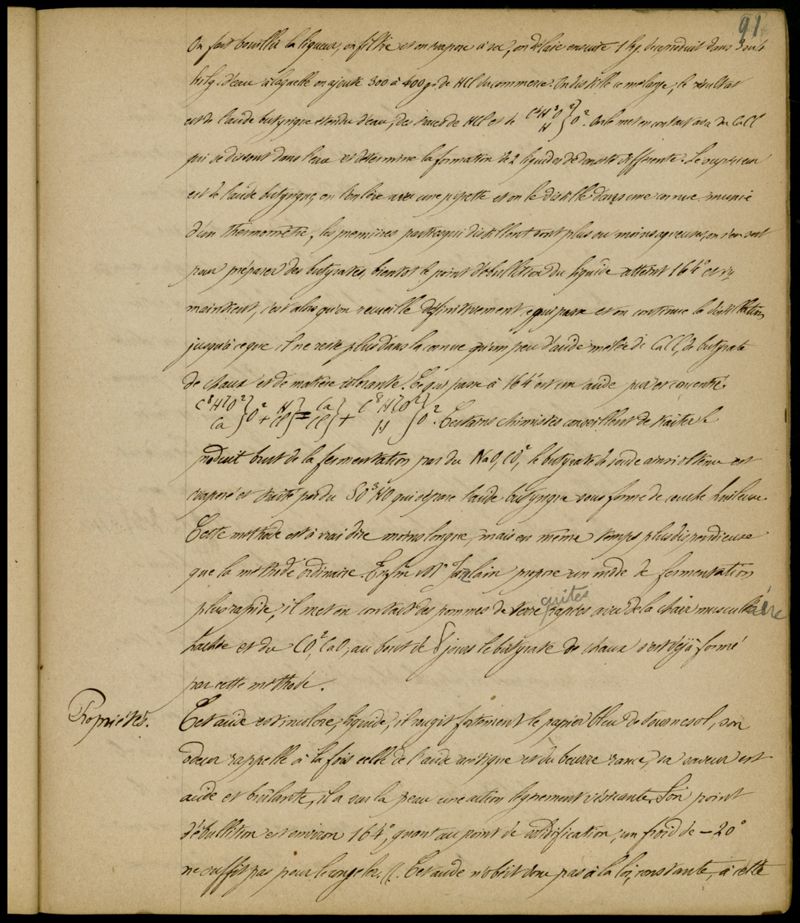 91
On fait bouillir la liqueur, on filtre et on évapore à sec, on délaie ensuite 1 kg. de ce produit dans 3 ou 4
kilg. d'eau à laquelle on ajoute 300 à 400 gr. de HCl du commerce. On distille ce mélange; le résultat
est de l'acide butyrique étendu d'eau, des traces de HCl et de C⁴H³O² H } O². On le met en contact avec du CaCl
qui se dissout dans l'eau et détermine la formation de 2 liquides de densité différente. Le supérieur
est de l'acide butyrique, on l'enlève avec une pipette et on le distille dans une cornue munie
d'un thermomètre, les premières parties qui distillent sont plus ou moins aqueuses, on s'en sert
pour préparer des butyrates, bientôt le point d'ébullition du liquide atteint 164° et s'y
maintient, c'est alors qu'on recueille définitivement ce qui passe et on continue la distillation
jusqu'à ce que il ne reste plus dans la cornue qu'un peu d'acide mêlé de CaCl, de butyrate
de chaux et de matière colorante. Ce qui passe à 164° est un acide pur et concentré.
C⁸H⁷O² Ca } O² + H Cl } = Ca Cl } + C⁸H⁷O² H } O². Certains chimistes conseillent de traiter le
produit brut de la fermentation par du NaO,CO², le butyrate de soude ainsi obtenu est
évaporé et traité par du SO³HO qui sépare l'acide butyrique sous forme de couche huileuse.
Cette méthode est à vrai dire moins longue, mais en même temps plus dispendieuse
que la méthode ordinaire. Enfin Mr propose un mode de fermentation
plus rapide; il met en contact des pommes de terre cuites râpées avec de la chair musculaire
hachée et du CO²,CaO, au bout de 8 jours le butyrate de chaux s'est déjà formé
par cette méthode.
Propriétés. Cet acide est incolore, liquide, il rougit fortement le papier bleu de tournesol, son
odeur rappelle à la fois celle de l'acide acétique et du beurre rance, sa saveur est
acide et brûlante, il a sur la peau une action légèrement vésicante. Son point
d'ébullition est environ 164°, quant au point de solidification, un froid de -20°
ne suffit pas pour le congeler. Cet acide n'obéit donc pas à la loi, constante, à cette